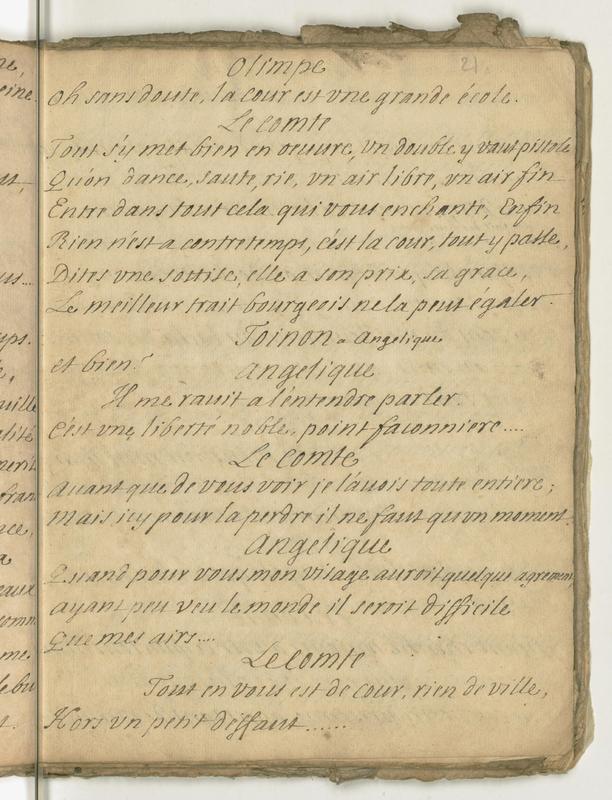 21.
Olimpe
Oh sans doute, la cour est vne grande école.
Le comte
Tout s'y met bien en oeuure, vn double y vaut pistole
Qu'on dance, saute, rie, vn air libre, vn air fin
Entre dans tout cela qui vous enchante, Enfin
Rien n'est a contretemps, c'est la cour, tout y passe,
Dites vne sottise, elle a son prix, sa grace,
Le meilleur trait bourgeois ne la peut égaler.
Toinon a Angelique
et bien?
Angelique
Il me rauit a l'entendre parler.
c'est vne liberté noble, point faconniere....
Le Comte
Auant que de vous voir je l'auois toute entiere;
Mais icy pour la perdre il ne faut qu'vn moment.
Angelique
Quand pour vous mon visage auroit quelque agrement,
ayant peu veu le monde il seroit difficile
Que mes airs....
Le Comte
Tout en vous est de cour, rien de ville,
Hors vn petit deffaut......